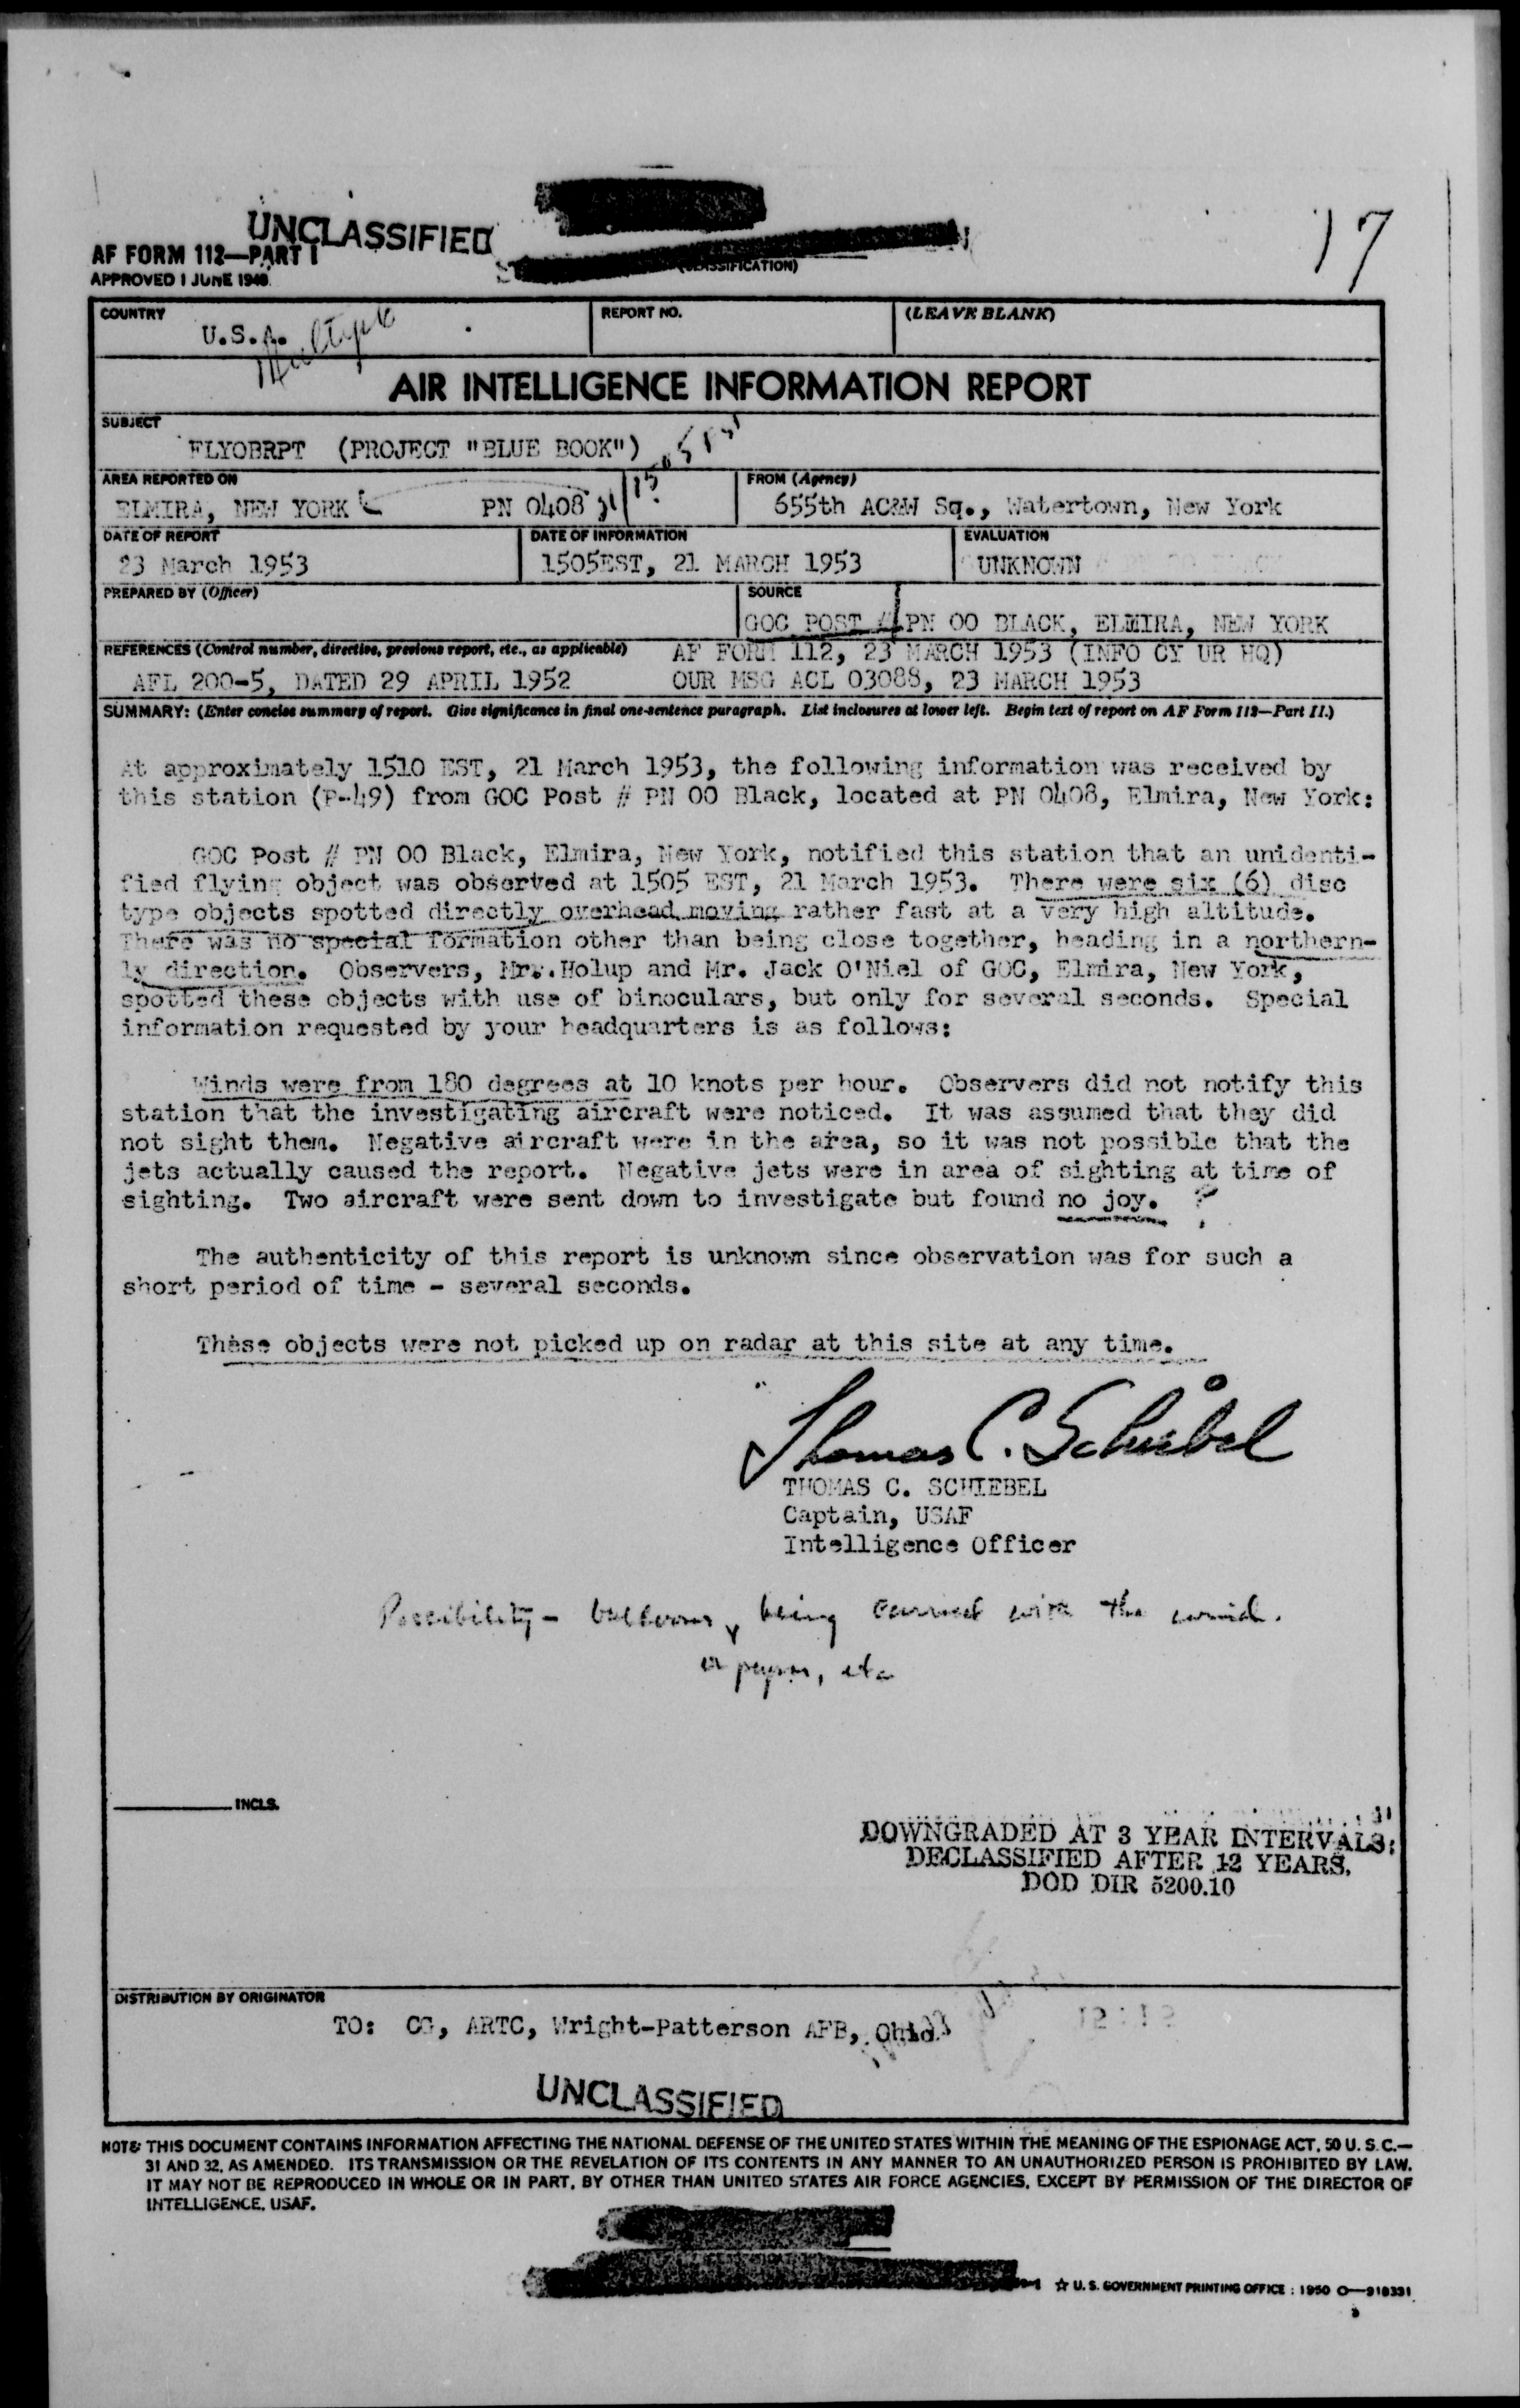 17
UNCLASSIFIED
AF FORM 112—PART I
APPROVED 1 JUNE 1948
(CLASSIFICATION)
COUNTRY
U.S.A.
Multiple
REPORT NO.
(LEAVE BLANK)
AIR INTELLIGENCE INFORMATION REPORT
SUBJECT
FLYOBRPT (PROJECT "BLUE BOOK")
AREA REPORTED ON
ELMIRA, NEW YORK PN 0408
FROM (Agency)
655th AC&W Sq., Watertown, New York
DATE OF REPORT
23 March 1953
DATE OF INFORMATION
1505EST, 21 MARCH 1953
EVALUATION
UNKNOWN
PREPARED BY (Officer)
SOURCE
GOC POST # PN OO BLACK, ELMIRA, NEW YORK
REFERENCES (Control number, directive, previous report, etc., as applicable)
AF FORM 112, 23 MARCH 1953 (INFO CY UR HQ)
AFL 200-5, DATED 29 APRIL 1952 OUR MSG ACL 03088, 23 MARCH 1953
SUMMARY: (Enter concise summary of report. Give significance in final one-sentence paragraph. List inclosures at lower left. Begin text of report on AF Form 112—Part II.)
At approximately 1510 EST, 21 March 1953, the following information was received by
this station (P-49) from GOC Post # PN OO Black, located at PN 0408, Elmira, New York:
GOC Post # PN OO Black, Elmira, New York, notified this station that an unidenti-
fied flying object was observed at 1505 EST, 21 March 1953. There were six (6) disc
type objects spotted directly overhead moving rather fast at a very high altitude.
There was no special formation other than being close together, heading in a northern-
ly direction. Observers, Mr. Holup and Mr. Jack O'Niel of GOC, Elmira, New York,
spotted these objects with use of binoculars, but only for several seconds. Special
information requested by your headquarters is as follows:
Winds were from 180 degrees at 10 knots per hour. Observers did not notify this
station that the investigating aircraft were noticed. It was assumed that they did
not sight them. Negative aircraft were in the area, so it was not possible that the
jets actually caused the report. Negative jets were in area of sighting at time of
sighting. Two aircraft were sent down to investigate but found no joy. ?
The authenticity of this report is unknown since observation was for such a
short period of time - several seconds.
These objects were not picked up on radar at this site at any time.
Thomas C. Schiebel
THOMAS C. SCHIEBEL
Captain, USAF
Intelligence Officer
Possibility - balloons being carried with the wind.
or paper, etc
INCLS.
DOWNGRADED AT 3 YEAR INTERVALS;
DECLASSIFIED AFTER 12 YEARS.
DOD DIR 5200.10
DISTRIBUTION BY ORIGINATOR
TO: CG, ARTC, Wright-Patterson AFB, Ohio
UNCLASSIFIED
NOTE: THIS DOCUMENT CONTAINS INFORMATION AFFECTING THE NATIONAL DEFENSE OF THE UNITED STATES WITHIN THE MEANING OF THE ESPIONAGE ACT, 50 U. S. C.—
31 AND 32, AS AMENDED. ITS TRANSMISSION OR THE REVELATION OF ITS CONTENTS IN ANY MANNER TO AN UNAUTHORIZED PERSON IS PROHIBITED BY LAW.
IT MAY NOT BE REPRODUCED IN WHOLE OR IN PART, BY OTHER THAN UNITED STATES AIR FORCE AGENCIES, EXCEPT BY PERMISSION OF THE DIRECTOR OF
INTELLIGENCE, USAF.
☆ U. S. GOVERNMENT PRINTING OFFICE : 1950 O—918331